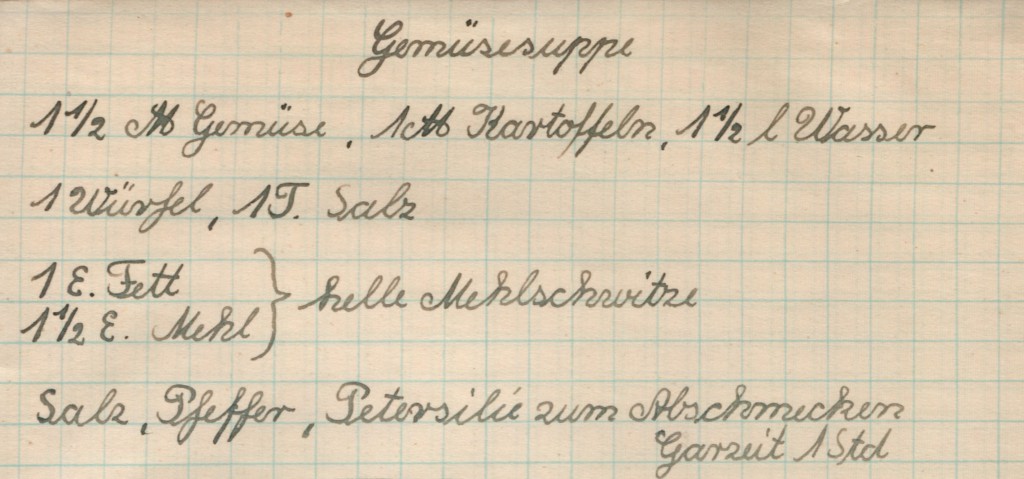 Gemüsesuppe
1 1/2 ℔ Gemüse, 1 ℔ Kartoffeln, 1 1/2 l Wasser
1 Würfel, 1 T. Salz
1 E. Fett
1 1/2 E. Mehl } helle Mehlschwitze
Salz, Pfeffer, Petersilie zum Abschmecken
Garzeit 1 Std